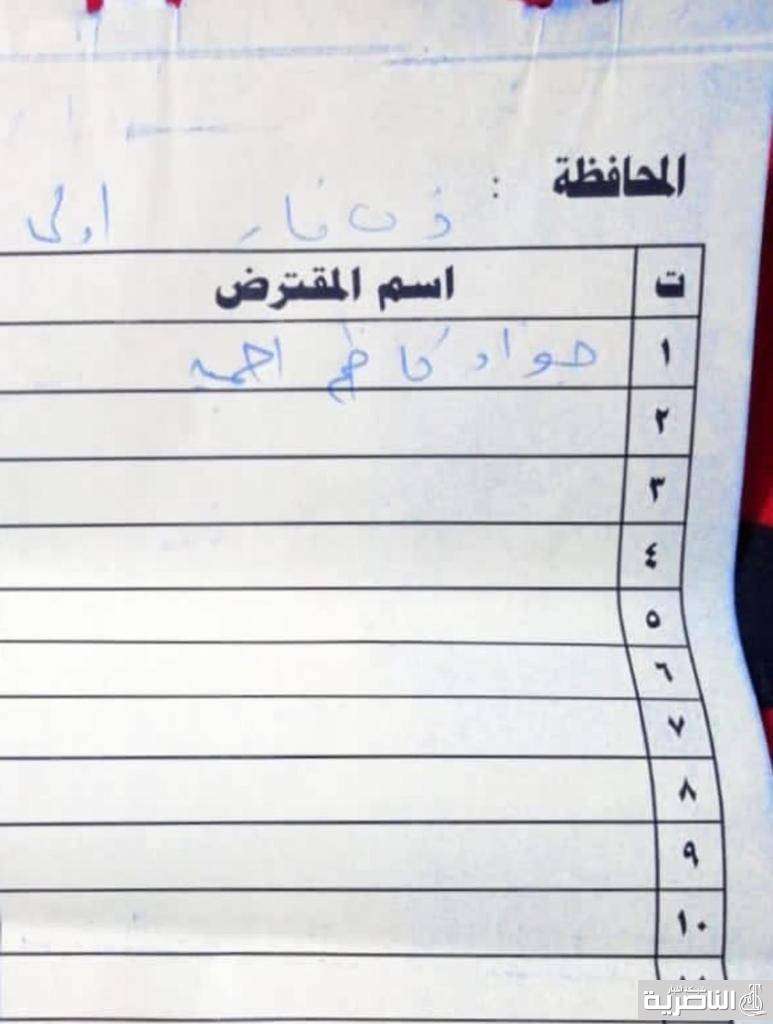 المحافظة :
ذي قار اولى
ت اسم المقترض
١ جواد كاظم احمد
٢
٣
٤
٥
٦
٧
٨
٩
١٠
شبكة أخبار
الناصرية